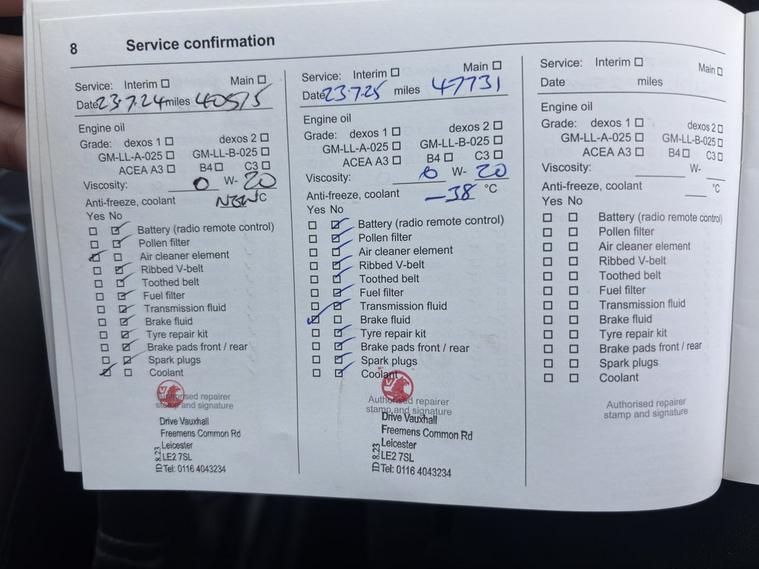 8 Service confirmation
Service: Interim ☐ Main ☐
Date 23.7.24 miles 40515
Engine oil
Grade: dexos 1 ☐ dexos 2 ☐
GM-LL-A-025 ☐ GM-LL-B-025 ☐
ACEA A3 ☐ B4 ☐ C3 ☐
Viscosity: 0 W- 20
Anti-freeze, coolant NEW °C
Yes No
☐ ☑ Battery (radio remote control)
☐ ☑ Pollen filter
☑ ☐ Air cleaner element
☐ ☑ Ribbed V-belt
☐ ☑ Toothed belt
☐ ☑ Fuel filter
☐ ☑ Transmission fluid
☐ ☑ Brake fluid
☐ ☑ Tyre repair kit
☐ ☑ Brake pads front / rear
☐ ☑ Spark plugs
☑ ☐ Coolant
Authorised repairer
stamp and signature
Drive Vauxhall
Freemens Common Rd
Leicester
LE2 7SL
Tel: 0116 4043234
ID 8.23
Service: Interim ☐ Main ☐
Date 23.7.25 miles 47731
Engine oil
Grade: dexos 1 ☐ dexos 2 ☐
GM-LL-A-025 ☐ GM-LL-B-025 ☐
ACEA A3 ☐ B4 ☐ C3 ☐
Viscosity: 0 W- 20
Anti-freeze, coolant -38 °C
Yes No
☐ ☑ Battery (radio remote control)
☐ ☑ Pollen filter
☐ ☑ Air cleaner element
☐ ☑ Ribbed V-belt
☐ ☑ Toothed belt
☐ ☑ Fuel filter
☐ ☑ Transmission fluid
☑ ☐ Brake fluid
☐ ☑ Tyre repair kit
☐ ☑ Brake pads front / rear
☐ ☑ Spark plugs
☐ ☑ Coolant
Authorised repairer
stamp and signature
Drive Vauxhall
Freemens Common Rd
Leicester
LE2 7SL
Tel: 0116 4043234
ID 8.23
Service: Interim ☐ Main ☐
Date miles
Engine oil
Grade: dexos 1 ☐ dexos 2 ☐
GM-LL-A-025 ☐ GM-LL-B-025 ☐
ACEA A3 ☐ B4 ☐ C3 ☐
Viscosity: W-
Anti-freeze, coolant °C
Yes No
☐ ☐ Battery (radio remote control)
☐ ☐ Pollen filter
☐ ☐ Air cleaner element
☐ ☐ Ribbed V-belt
☐ ☐ Toothed belt
☐ ☐ Fuel filter
☐ ☐ Transmission fluid
☐ ☐ Brake fluid
☐ ☐ Tyre repair kit
☐ ☐ Brake pads front / rear
☐ ☐ Spark plugs
☐ ☐ Coolant
Authorised repairer
stamp and signature